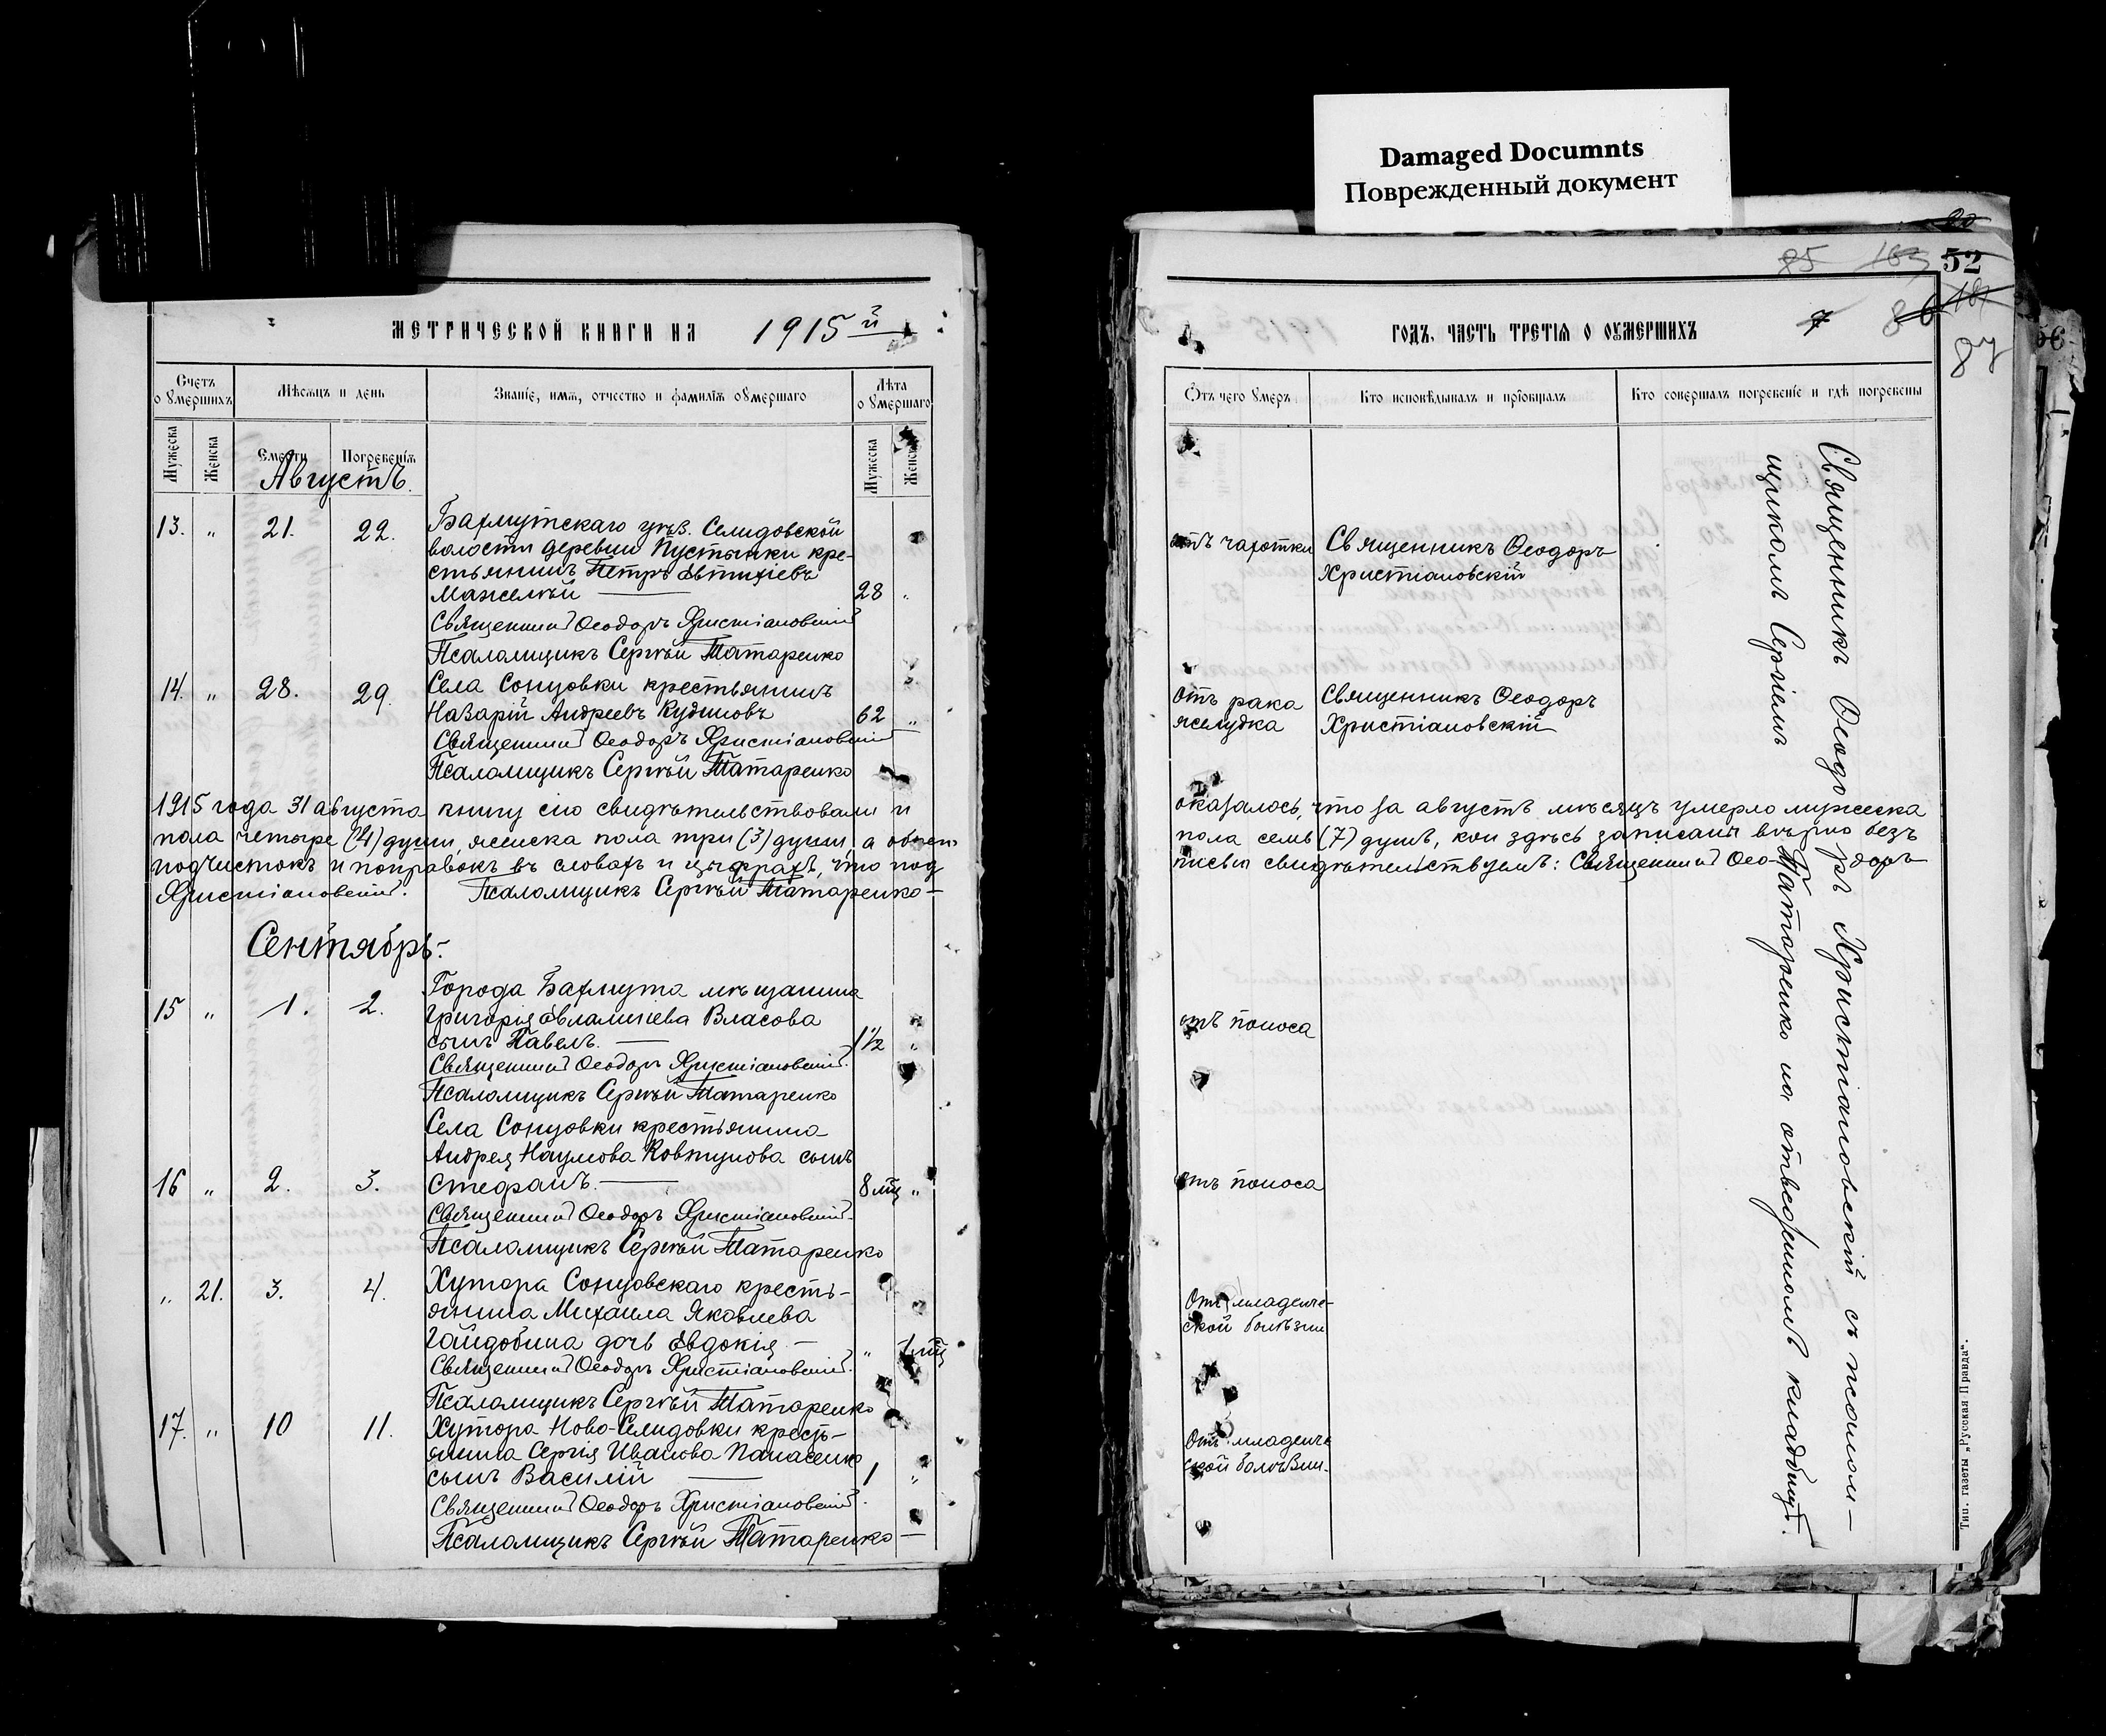 Damaged Documnts
Поврежденный документ
52
87
МЕТРИЧЕСКОЙ КНИГИ НА 1915 й
Счетъ о умершихъ
Мѣсяцъ и день
Званіе, имя, отчество и фамилія умершаго
Лѣта о умершаго
Мужеска
Женска
Смерти
Погребенія
Мужеска
Женска
Августъ.
13. " 21. 22. Бахмутскаго уѣз. Селидовской
волости деревни Пустынки кре-
стьянинъ Петръ Евтихіевъ
Манжелѣй 28 "
Священникъ Ѳеодоръ Християновскій
Псаломщикъ Сергѣй Татаренко
14. " 28. 29. Села Сонцовки крестьянинъ
Назарій Андреевъ Кудиновъ 62 "
Священникъ Ѳеодоръ Християновскій
Псаломщикъ Сергѣй Татаренко
1915 года 31 августа книгу сію свидѣтельствовали и
пола четыре (4) души, женска пола три (3) души, а обоего
подчистокъ и поправокъ въ словахъ и цыфрахъ, что под
Християновскій. Псаломщикъ Сергѣй Татаренко
Сентябрь.
15 " 1. 2. Города Бахмута мѣщанина
Григорія Евлампіева Власова
сынъ Павелъ. 1 1/2 "
Священникъ Ѳеодоръ Християновскій.
Псаломщикъ Сергѣй Татаренко
Села Сонцовки крестьянина
Андрея Наумова Ковтунова сынъ
16 " 2. 3. Стефанъ. 8 мц "
Священникъ Ѳеодоръ Християновскій.
Псаломщикъ Сергѣй Татаренко
" 21. 3. 4. Хутора Сонцовскаго кресть-
янина Михаила Яковлева
Гайдобина дочь Евдокія " 1 мц
Священникъ Ѳеодоръ Християновскій.
Псаломщикъ Сергѣй Татаренко
17. " 10 11. Хутора Ново-Селидовки кресть-
янина Сергія Иванова Панасенко
сынъ Василій 1 "
Священникъ Ѳеодоръ Християновскій.
Псаломщикъ Сергѣй Татаренко
ГОДЪ, ЧАСТЬ ТРЕТІЯ О ОУМЕРШИХЪ
Отъ чего умеръ
Кто исповѣдывалъ и пріобщалъ
Кто совершалъ погребеніе и гдѣ погребены
отъ чахотки Священникъ Ѳеодоръ
Христіановскій
отъ рака Священникъ Ѳеодоръ
желудка Христіановскій
оказалось, что за августъ мѣсяцъ умерло мужеска
пола семь (7) душъ, кои здѣсь записаны вѣрно безъ
писью свидѣтельствуемъ: Священникъ Ѳео-доръ
отъ поноса
отъ поноса
Отъ младенче-
ской болѣзни
Отъ младенче
ской болѣзни.
Священникъ Ѳеодоръ Христіановскій съ псалом-
щикомъ Сергіемъ Татаренко на отведенномъ кладбищѣ.
Тип. газеты „Русская Правда“.